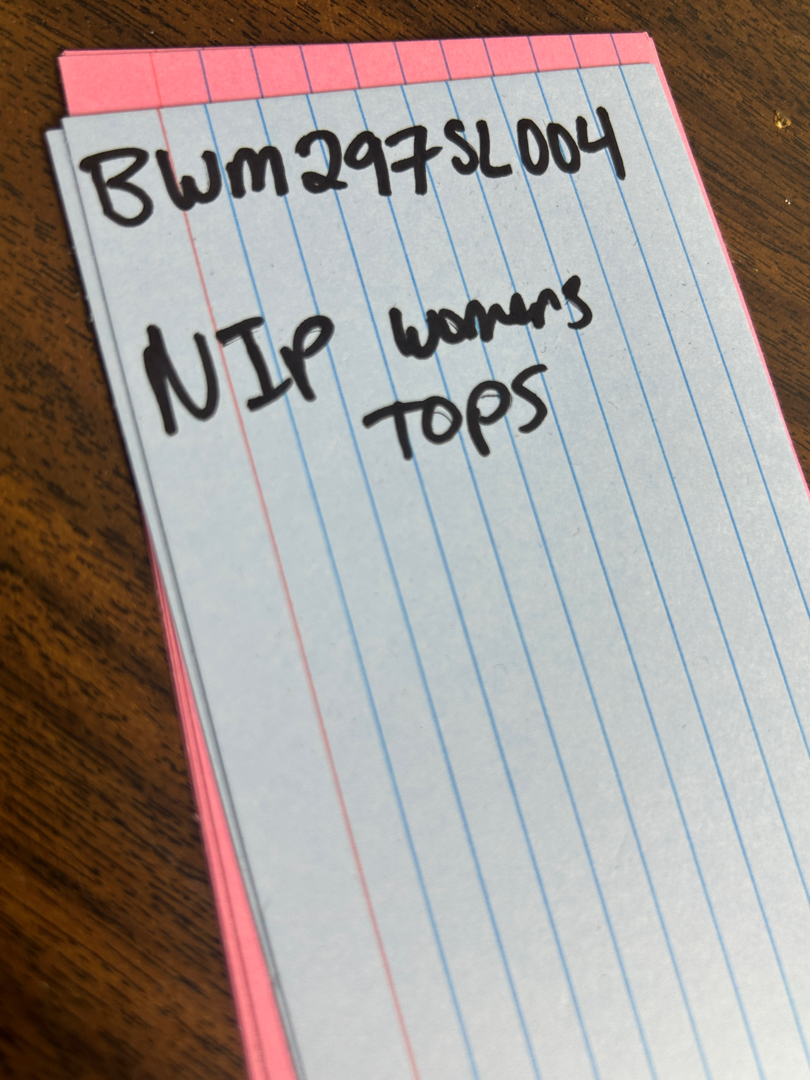 BWM297SL004
NIP womens
TOPS